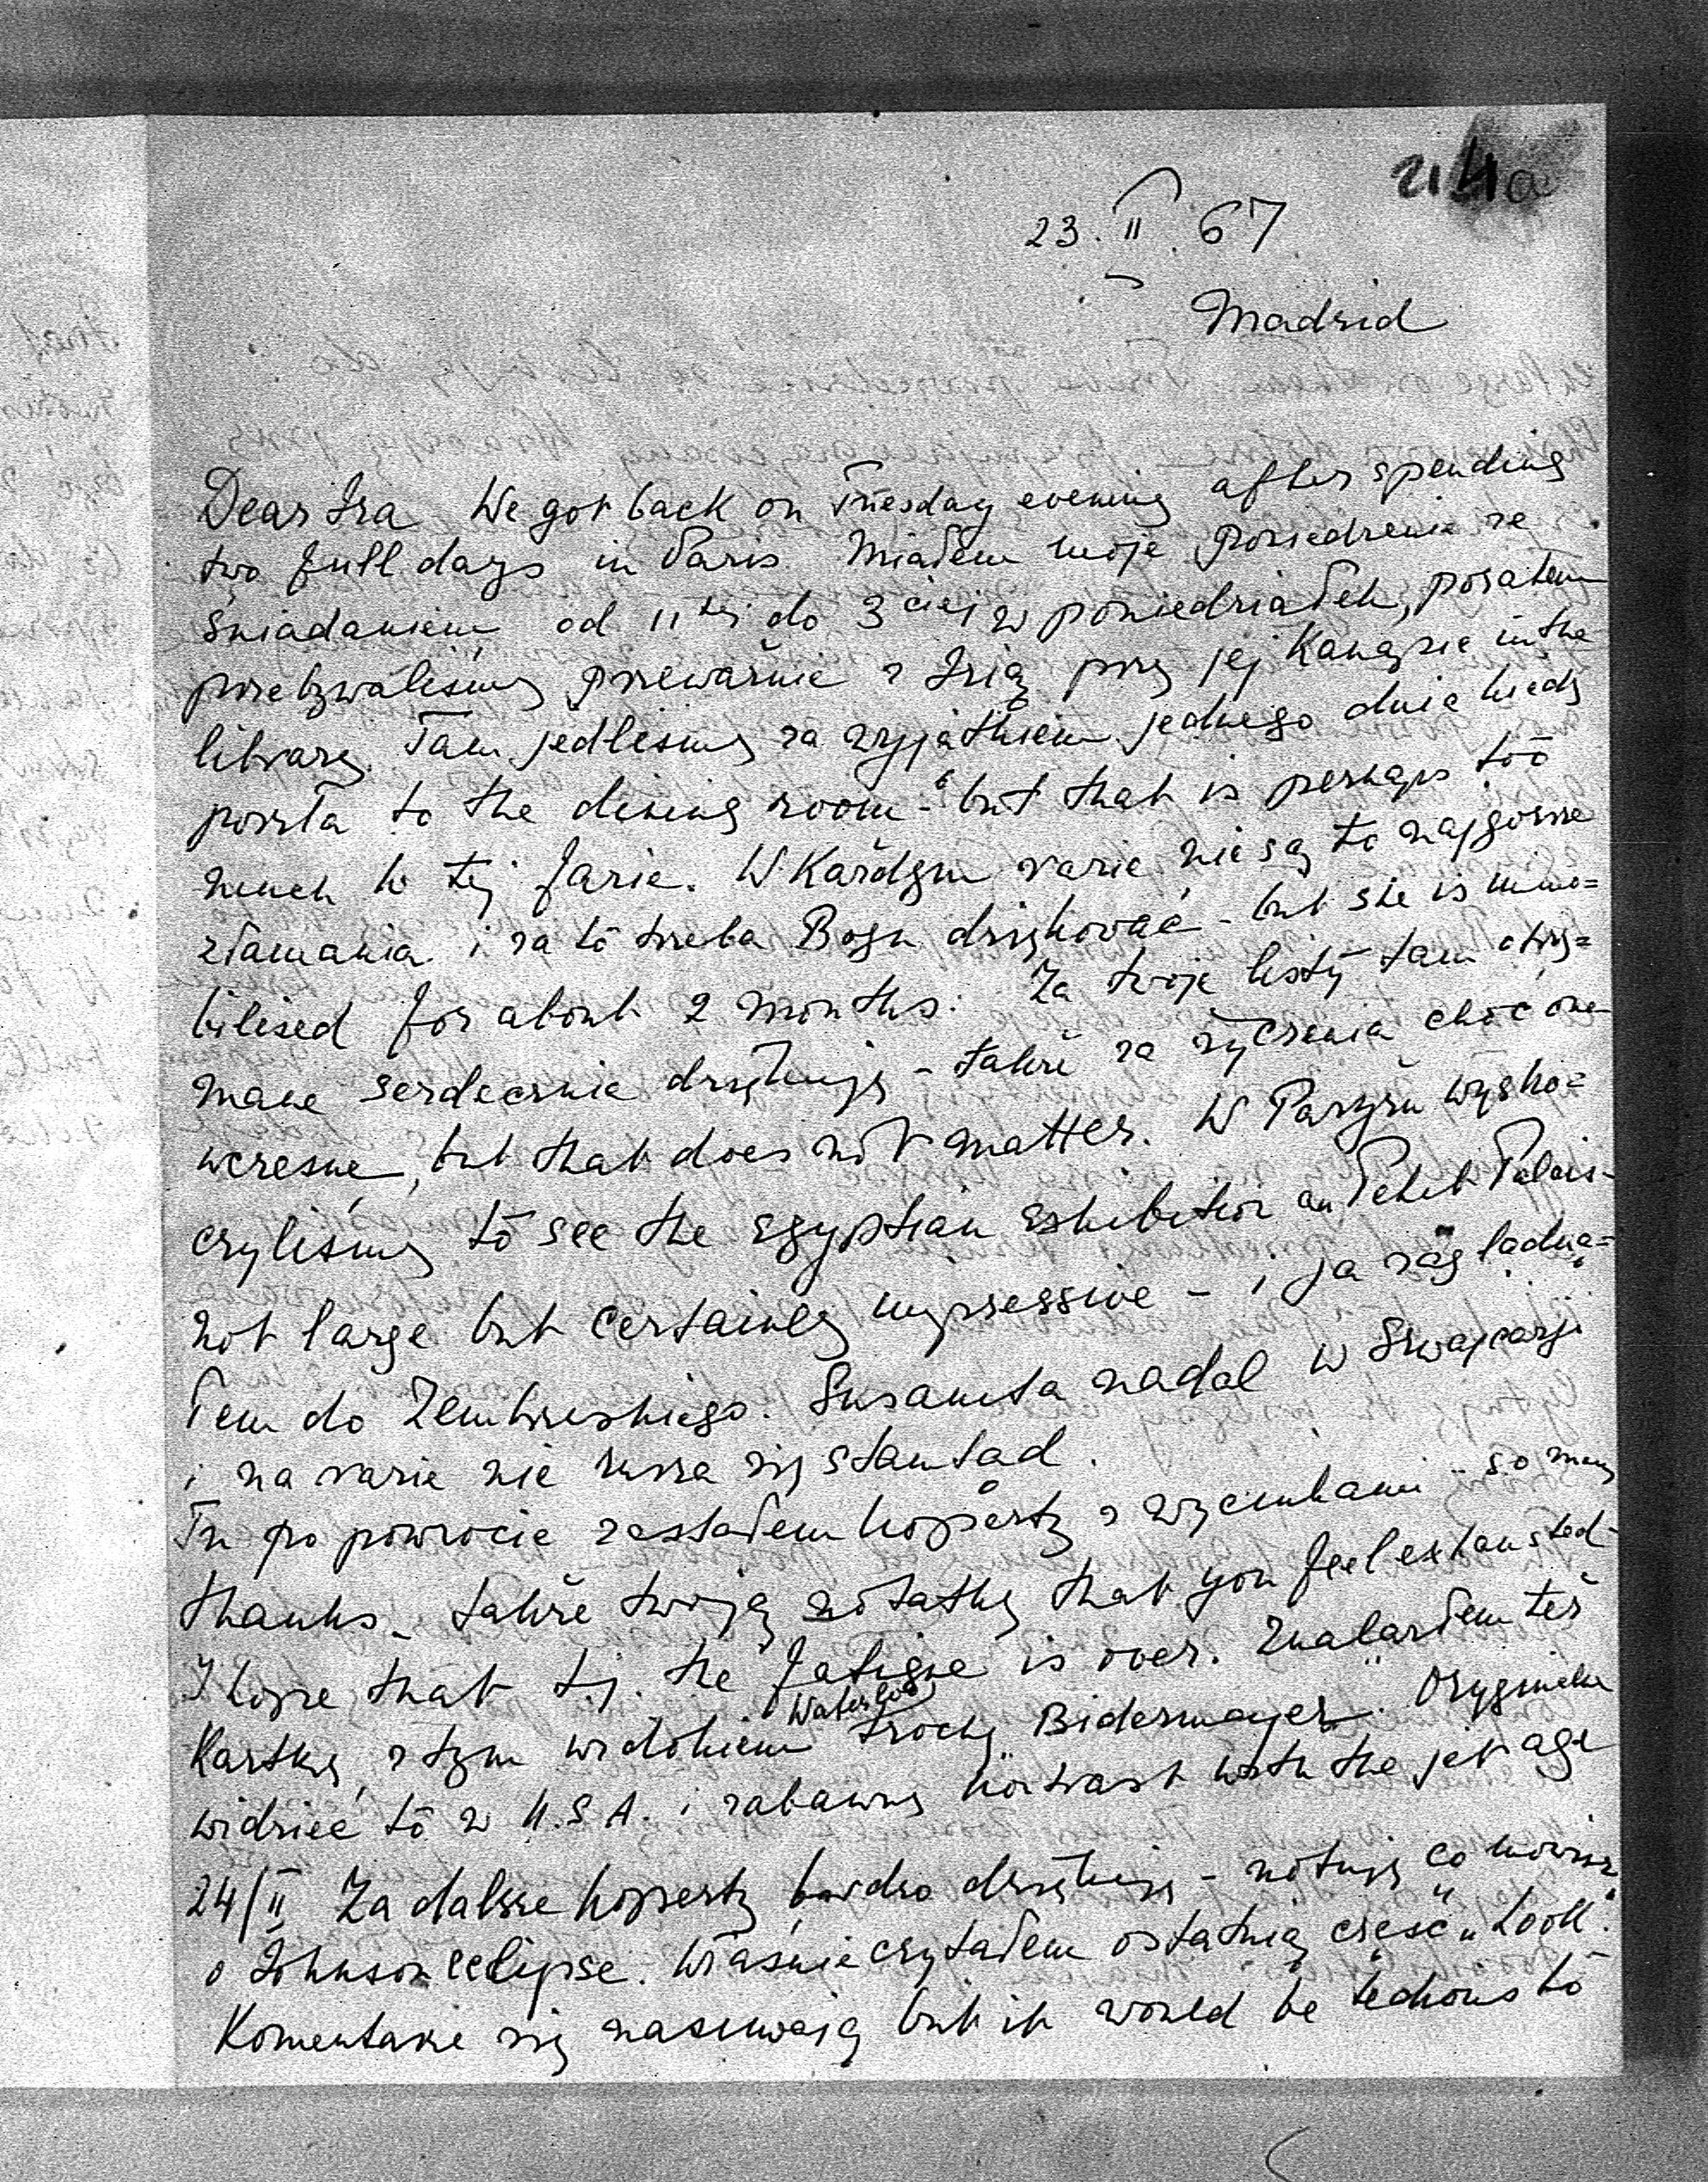 214a
23. II. 67
Madrid
Dear Ira We got back on Tuesday evening after spending
two full days in Paris. Miałem moje posiedzenie ze
śniadaniem od 11tej do 3ciej w poniedziałek, pozatem
przebywaliśmy przeważnie z Isią przy jej kanapie in the
library. Tam jedliśmy za wyjątkiem jednego dnia kiedy
poszła to the dining room - but that is perhaps too
much w tej fazie. W każdym razie nie są to najgorsze
złamania i za to trzeba Bogu dziękować - but she is immo=
bilised for about 2 months. Za twoje listy tam otrzy=
mane serdecznie dziękuję - także za życzenia choć one
wczesne, but that does not matter. W Paryżu wysko=
czyliśmy to see the Egyptian exhibition au Petit Palais -
not large but certainly impressive - i ja zaglądną=
łem do Zembrzuskiego. Susanita nadal w Szwajcarji
i na razie nie rusza się stamtąd.
Tu po powrocie zastałem koperty z wycinkami - so many
thanks - także twoją notatkę that you feel exhausted -
I hope that tj. the fatigue is over. Znalazłem też
kartkę z tym widokiem Waterloo trochę "Bidermayer". Oryginalne
widzieć to w U.S.A. i zabawny kontrast with the jet age
24/II Za dalsze koperty bardzo dziękuję - notuję co mówisz
o Johnson eclipse. Właśnie czytałem ostatnią część "Look".
Komentarze się nasuwają but it would be tedious to